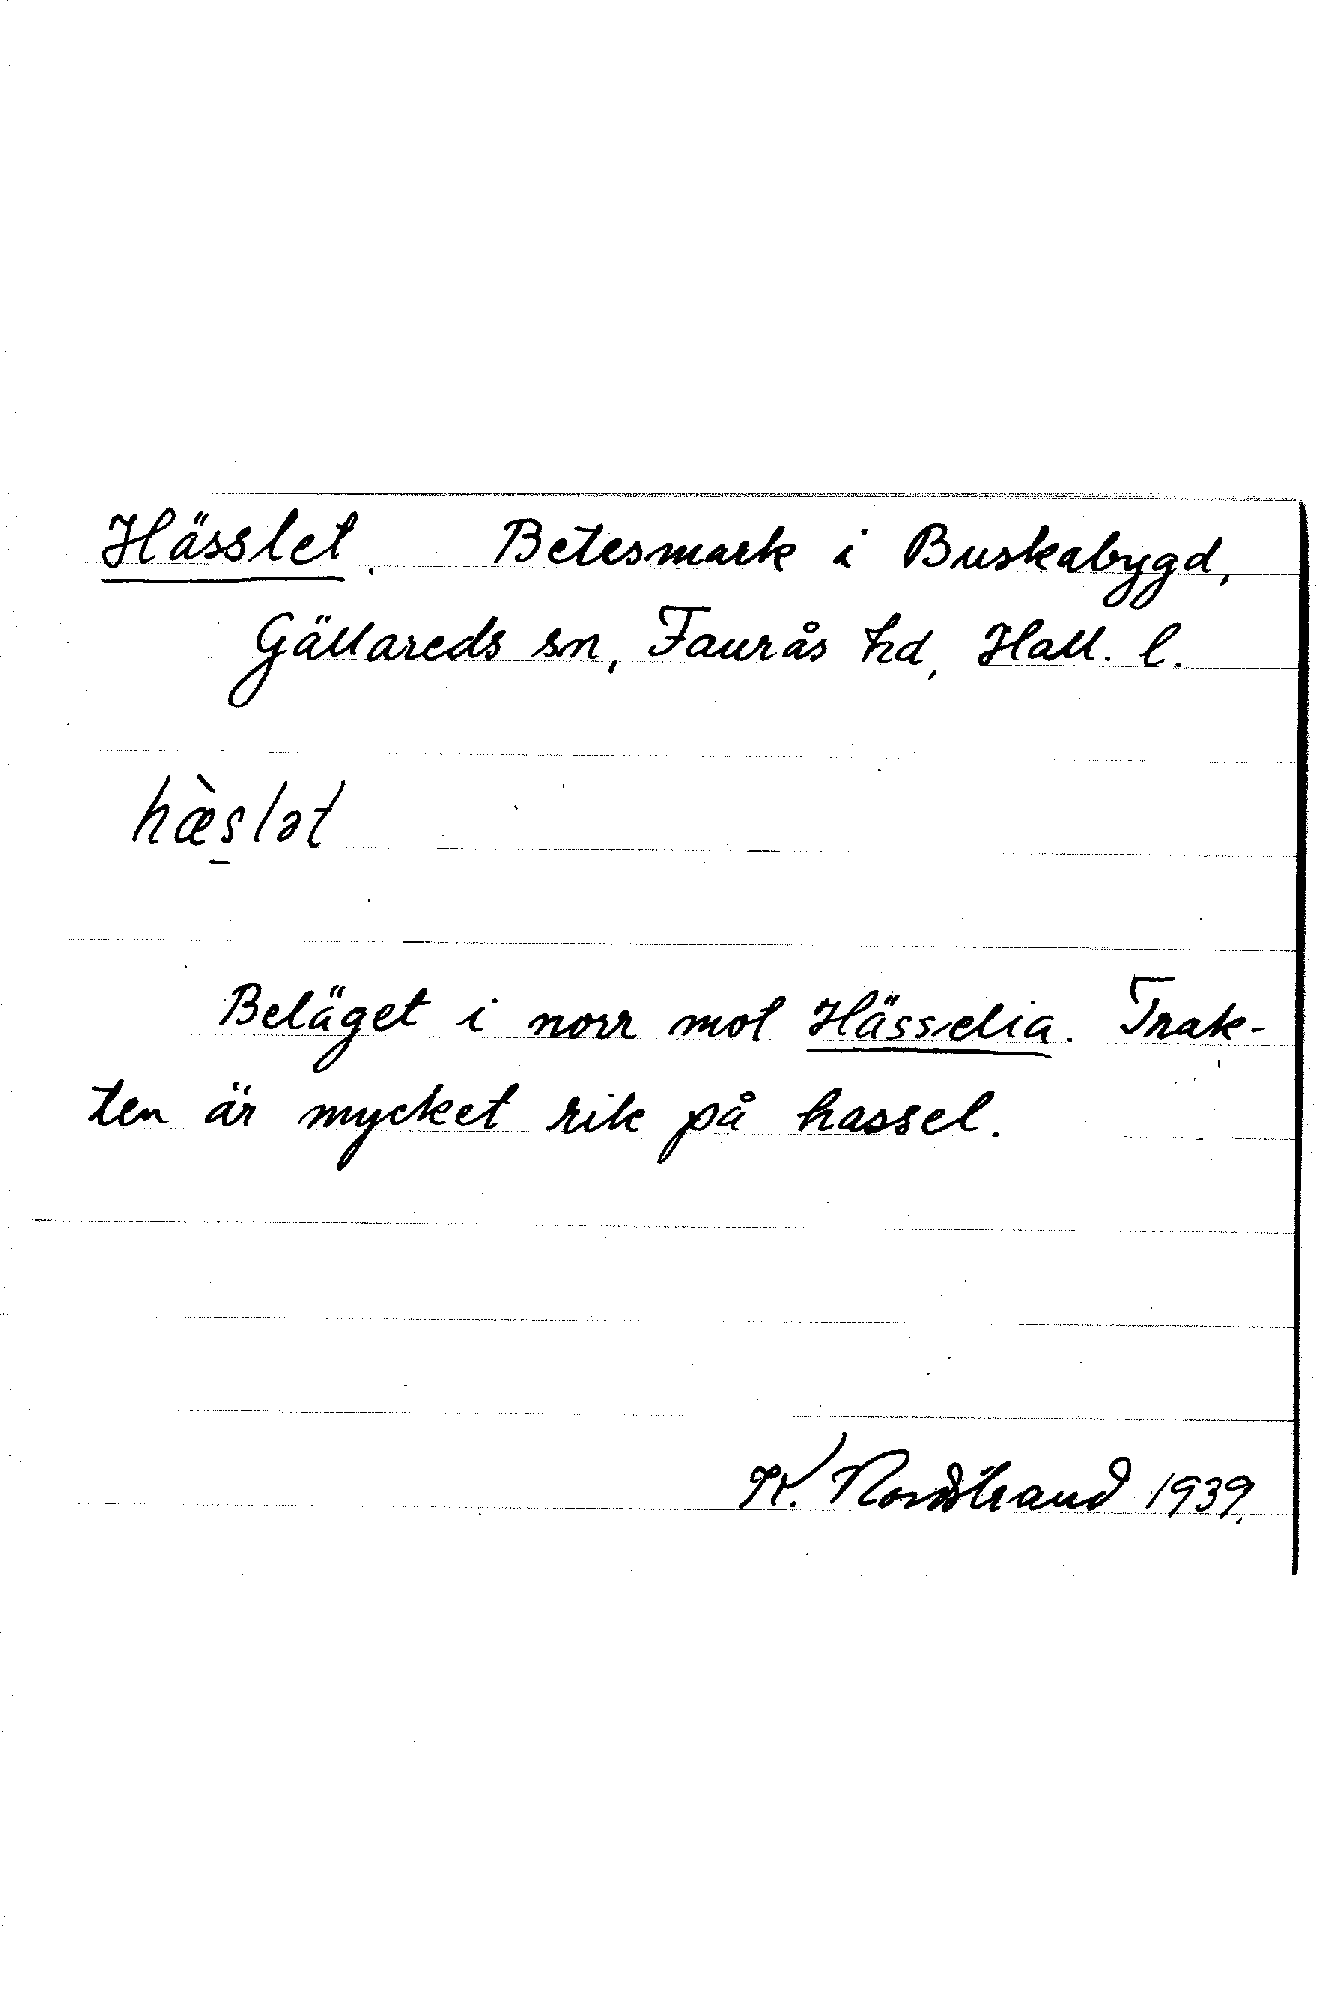 Hässlet. Betesmark i Buskabygd,
Gällareds sn, Faurås hd, Hall. l.
hæ̀s̠lət
Beläget i norr mot Hässelia. Trak-
ten är mycket rik på hassel.
K. Nordstrand 1939.